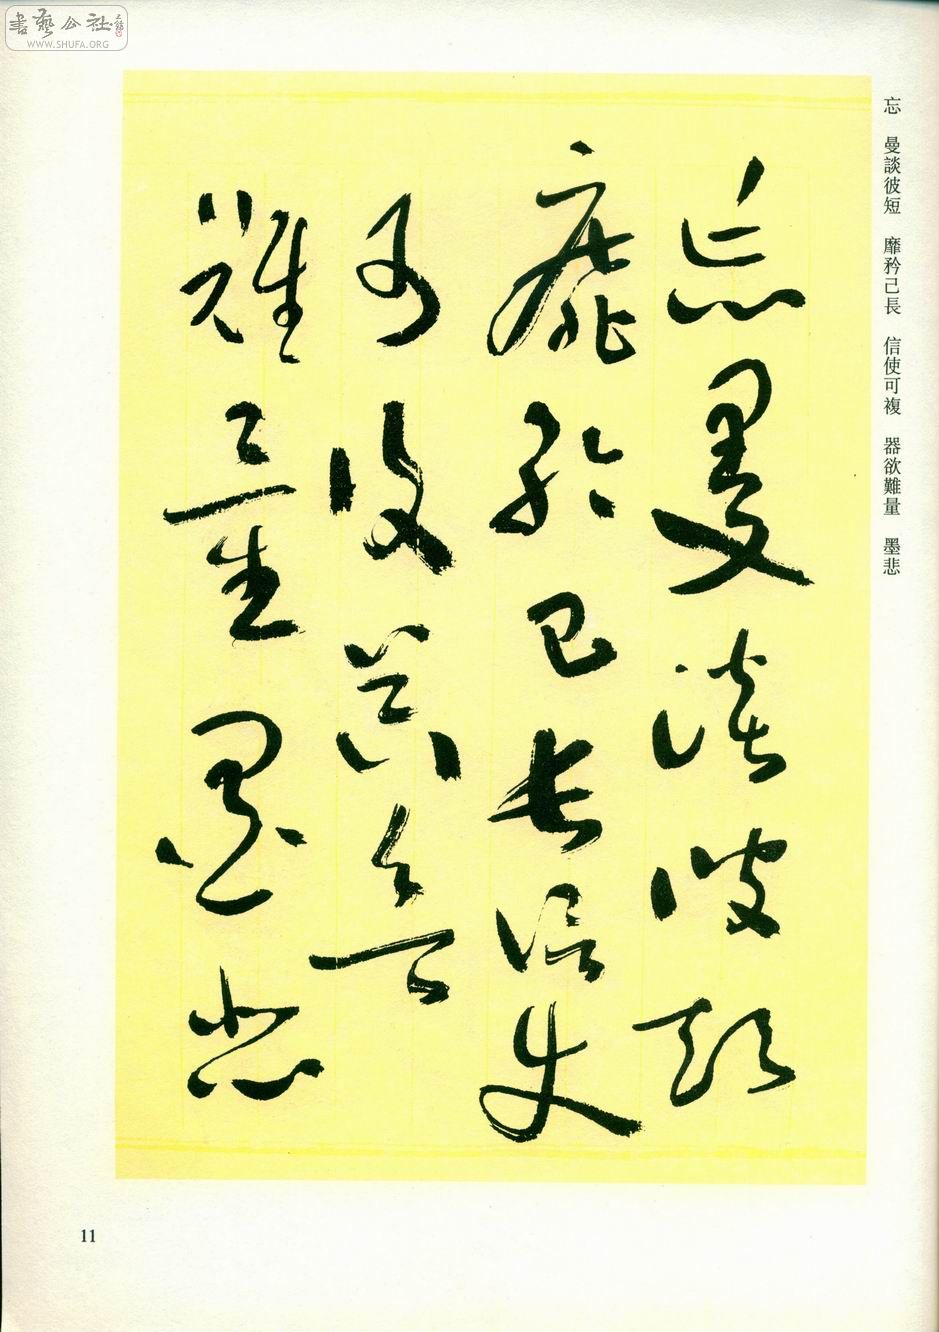 書藝公社
WWW.SHUFA.ORG
忘 曼談彼短 靡矜己長 信使可複 器欲難量 墨悲
忘曼談彼短
靡矜己長信使
可復器欲
難量墨悲
11